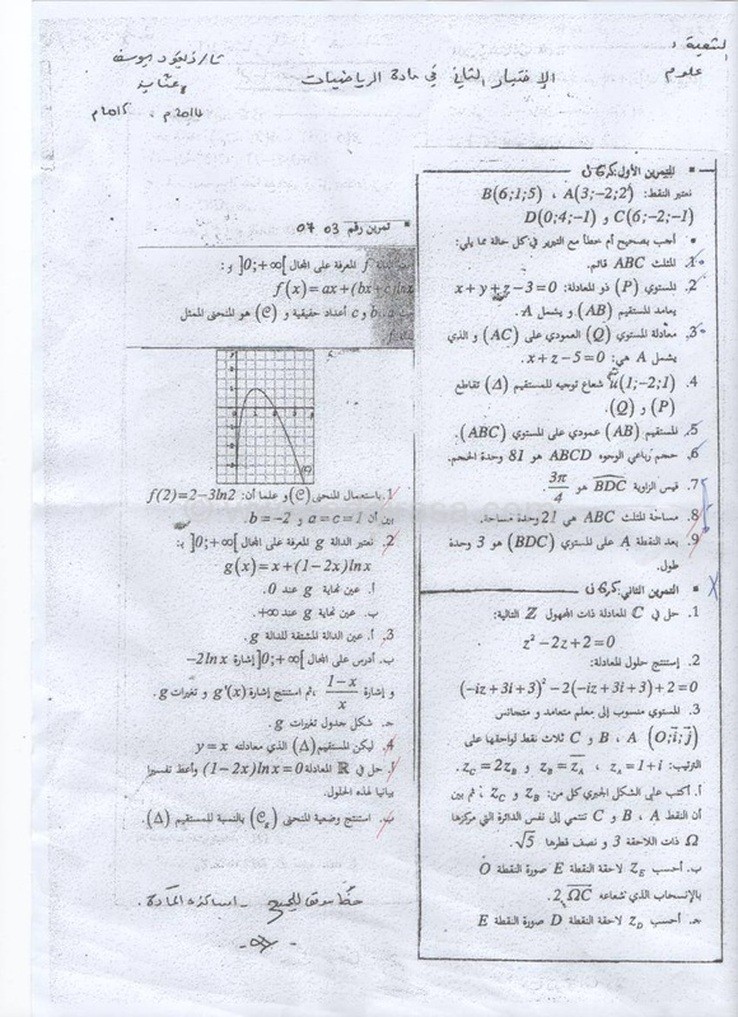 الشعبة :
علوم
الإختبار الثاني في مادة الرياضيات
عنابة
▪ التمرين الأول:
نعتبر النقط: A(3;-2;2) ، B(6;1;5)
C(6;-2;-1) و D(0;4;-1)
• أجب بصحيح أم خطأ مع التبرير في كل حالة مما يلي:
1. المثلث ABC قائم.
2. المستوي (P) ذو المعادلة: x+y+z-3=0
يعامد المستقيم (AB) و يشمل A.
3. معادلة المستوي (Q) العمودي على (AC) و الذي
يشمل A هي: x+z-5=0.
4. u(1;-2;1) شعاع توجيه للمستقيم (Δ) تقاطع
(P) و (Q).
5. المستقيم (AB) عمودي على المستوي (ABC).
6. حجم رباعي الوجوه ABCD هو 81 وحدة الحجم.
7. قيس الزاوية BDC هو 3π/4
8. مساحة المثلث ABC هي 21 وحدة مساحة.
9. بعد النقطة A على المستوي (BDC) هو 3 وحدة
طول.
▪ التمرين الثاني:
1. حل في ℂ المعادلة ذات المجهول Z التالية:
z²-2z+2=0
2. إستنتج حلول المعادلة:
(-iz+3i+3)²-2(-iz+3i+3)+2=0
3. المستوي منسوب إلى معلم متعامد و متجانس
(O;i;j) A ، B و C ثلاث نقط لواحقها على
الترتيب: z_A=1+i ، z_B=z̄_A و z_C=2z_B.
أ. أكتب على الشكل الجبري كل من: z_B و z_C ، ثم بين
أن النقط A ، B و C تنتمي إلى نفس الدائرة التي مركزها
Ω ذات اللاحقة 3 و نصف قطرها √5.
ب. أحسب z_E لاحقة النقطة E صورة النقطة O
بالإنسحاب الذي شعاعه 2ΩC.
جـ. أحسب z_D لاحقة النقطة D صورة النقطة E
▪ تمرين رقم 03
f المعرفة على المجال ]0;+∞[ و :
f(x)=ax+(bx+c)lnx
b و c أعداد حقيقية و (C) هو المنحنى الممثل
1. باستعمال المنحنى (C) و علما أن: f(2)=2-3ln2
بين أن a=c=1 و b=-2.
2. نعتبر الدالة g المعرفة على المجال ]0;+∞[ بـ:
g(x)=x+(1-2x)lnx
أ. عين نهاية g عند 0.
ب. عين نهاية g عند +∞.
3. أ. عين الدالة المشتقة للدالة g.
ب. أدرس على المجال ]0;+∞[ إشارة -2lnx
و إشارة (1-x)/x ، ثم استنتج إشارة g'(x) و تغيرات g.
جـ. شكل جدول تغيرات g.
4. ليكن المستقيم (Δ) الذي معادلته y=x
أ. حل في ℝ المعادلة (1-2x)lnx=0 وأعط تفسيرا
بيانيا لهذه الحلول.
ب. استنتج وضعية المنحنى (C_g) بالنسبة للمستقيم (Δ).
حظ موفق للجميع - اساتذة المادة.